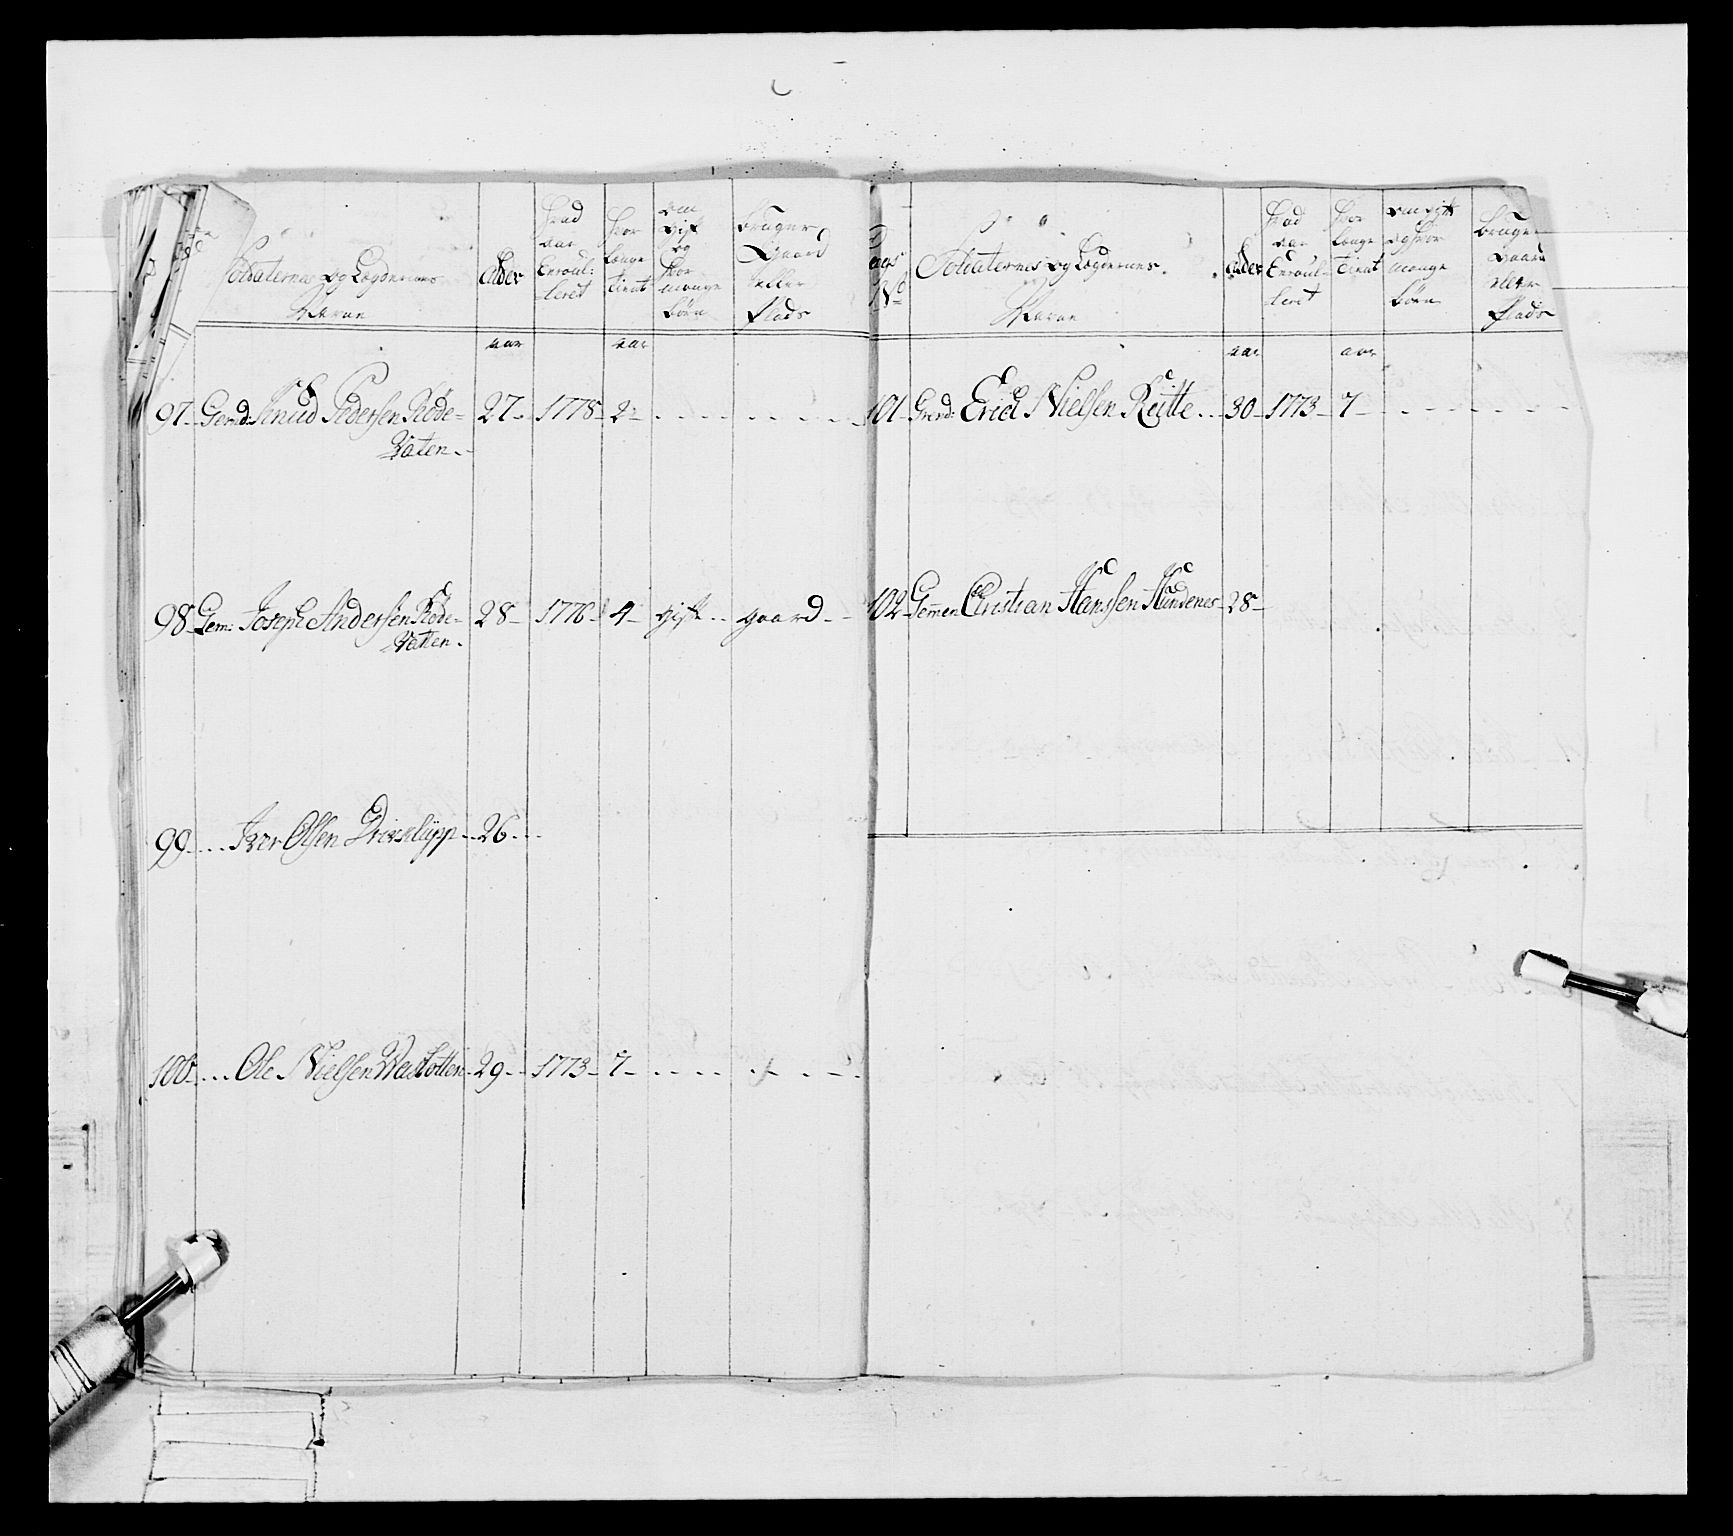 Soldaternes og Lægdernes
Navne
Alder
Hvad
aar
Enroul:
leret
Hvor
længe
tient
om
gift
og
hvor
mange
børn
bruger
Gaard
eller
plads
aar
aar
97. Gemd: Knud Pedersen Röde-
Vaten.
27. 1778 2
98. Gem: Joseph Andersen Röde-
Vatten.
28 1776 4 gift gaard
99 Iver Olsen 26
100 Ole Nielsen 29 1773 7
No
Soldaternes og Lægdernes
Navne
Alder
Hvad
aar
Enroul-
leret
Hvor
længe
tient
om gift
og hvor
mange
børn
bruger
gaard
eller
plads
aar
aar
101 Erich Nielsen 30 1773 7
102 Gemen Christian Hanssen 28